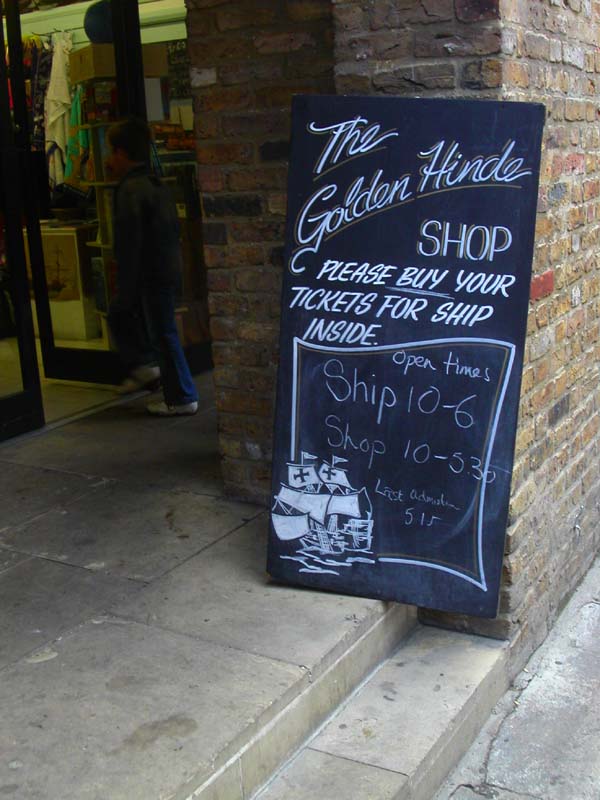 The
Golden Hinde
SHOP
PLEASE BUY YOUR
TICKETS FOR SHIP
INSIDE.
Open times
Ship 10-6
Shop 10-530
Last admission
515